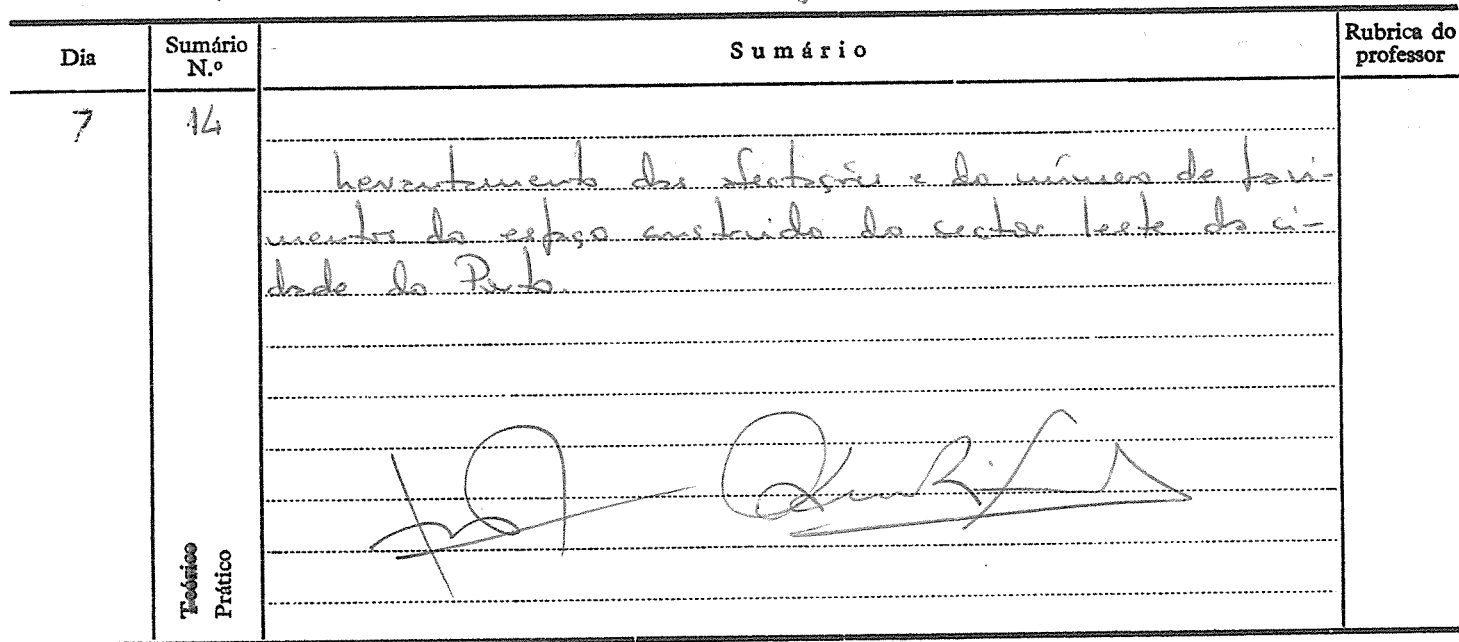 Dia
Sumário N.º
Sumário
Rubrica do professor
7
14
Levantamento das afectações e do número de pavi-
mentos do espaço construido do sector leste da ci-
dade do Porto.
Teórico
Prático